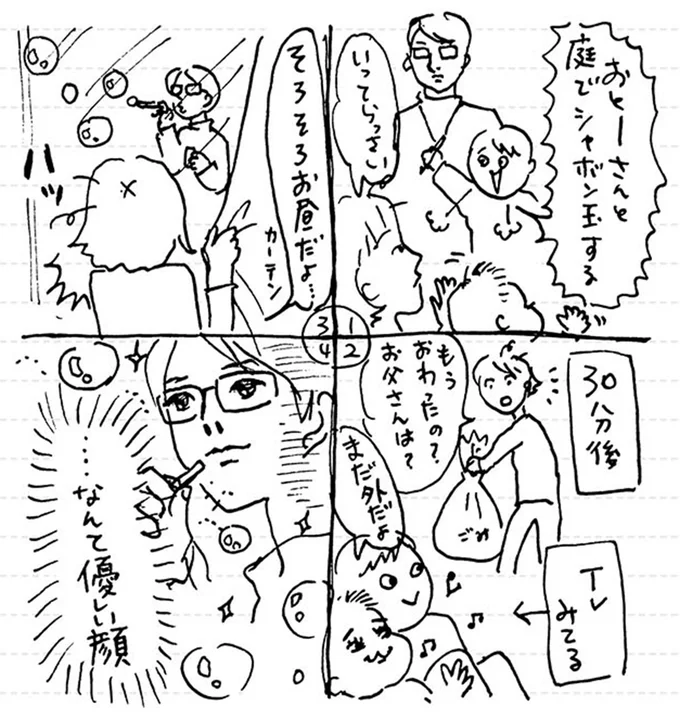 おとーさんと
庭でシャボン玉する
いってらっさい
1
2
3
4
30分後
もう
おわったの?
お父さんは?
ごみ
まだ外だよ
TV
みてる
そろそろお昼だよ…
カーテン
ハッ
……なんて優しい顔